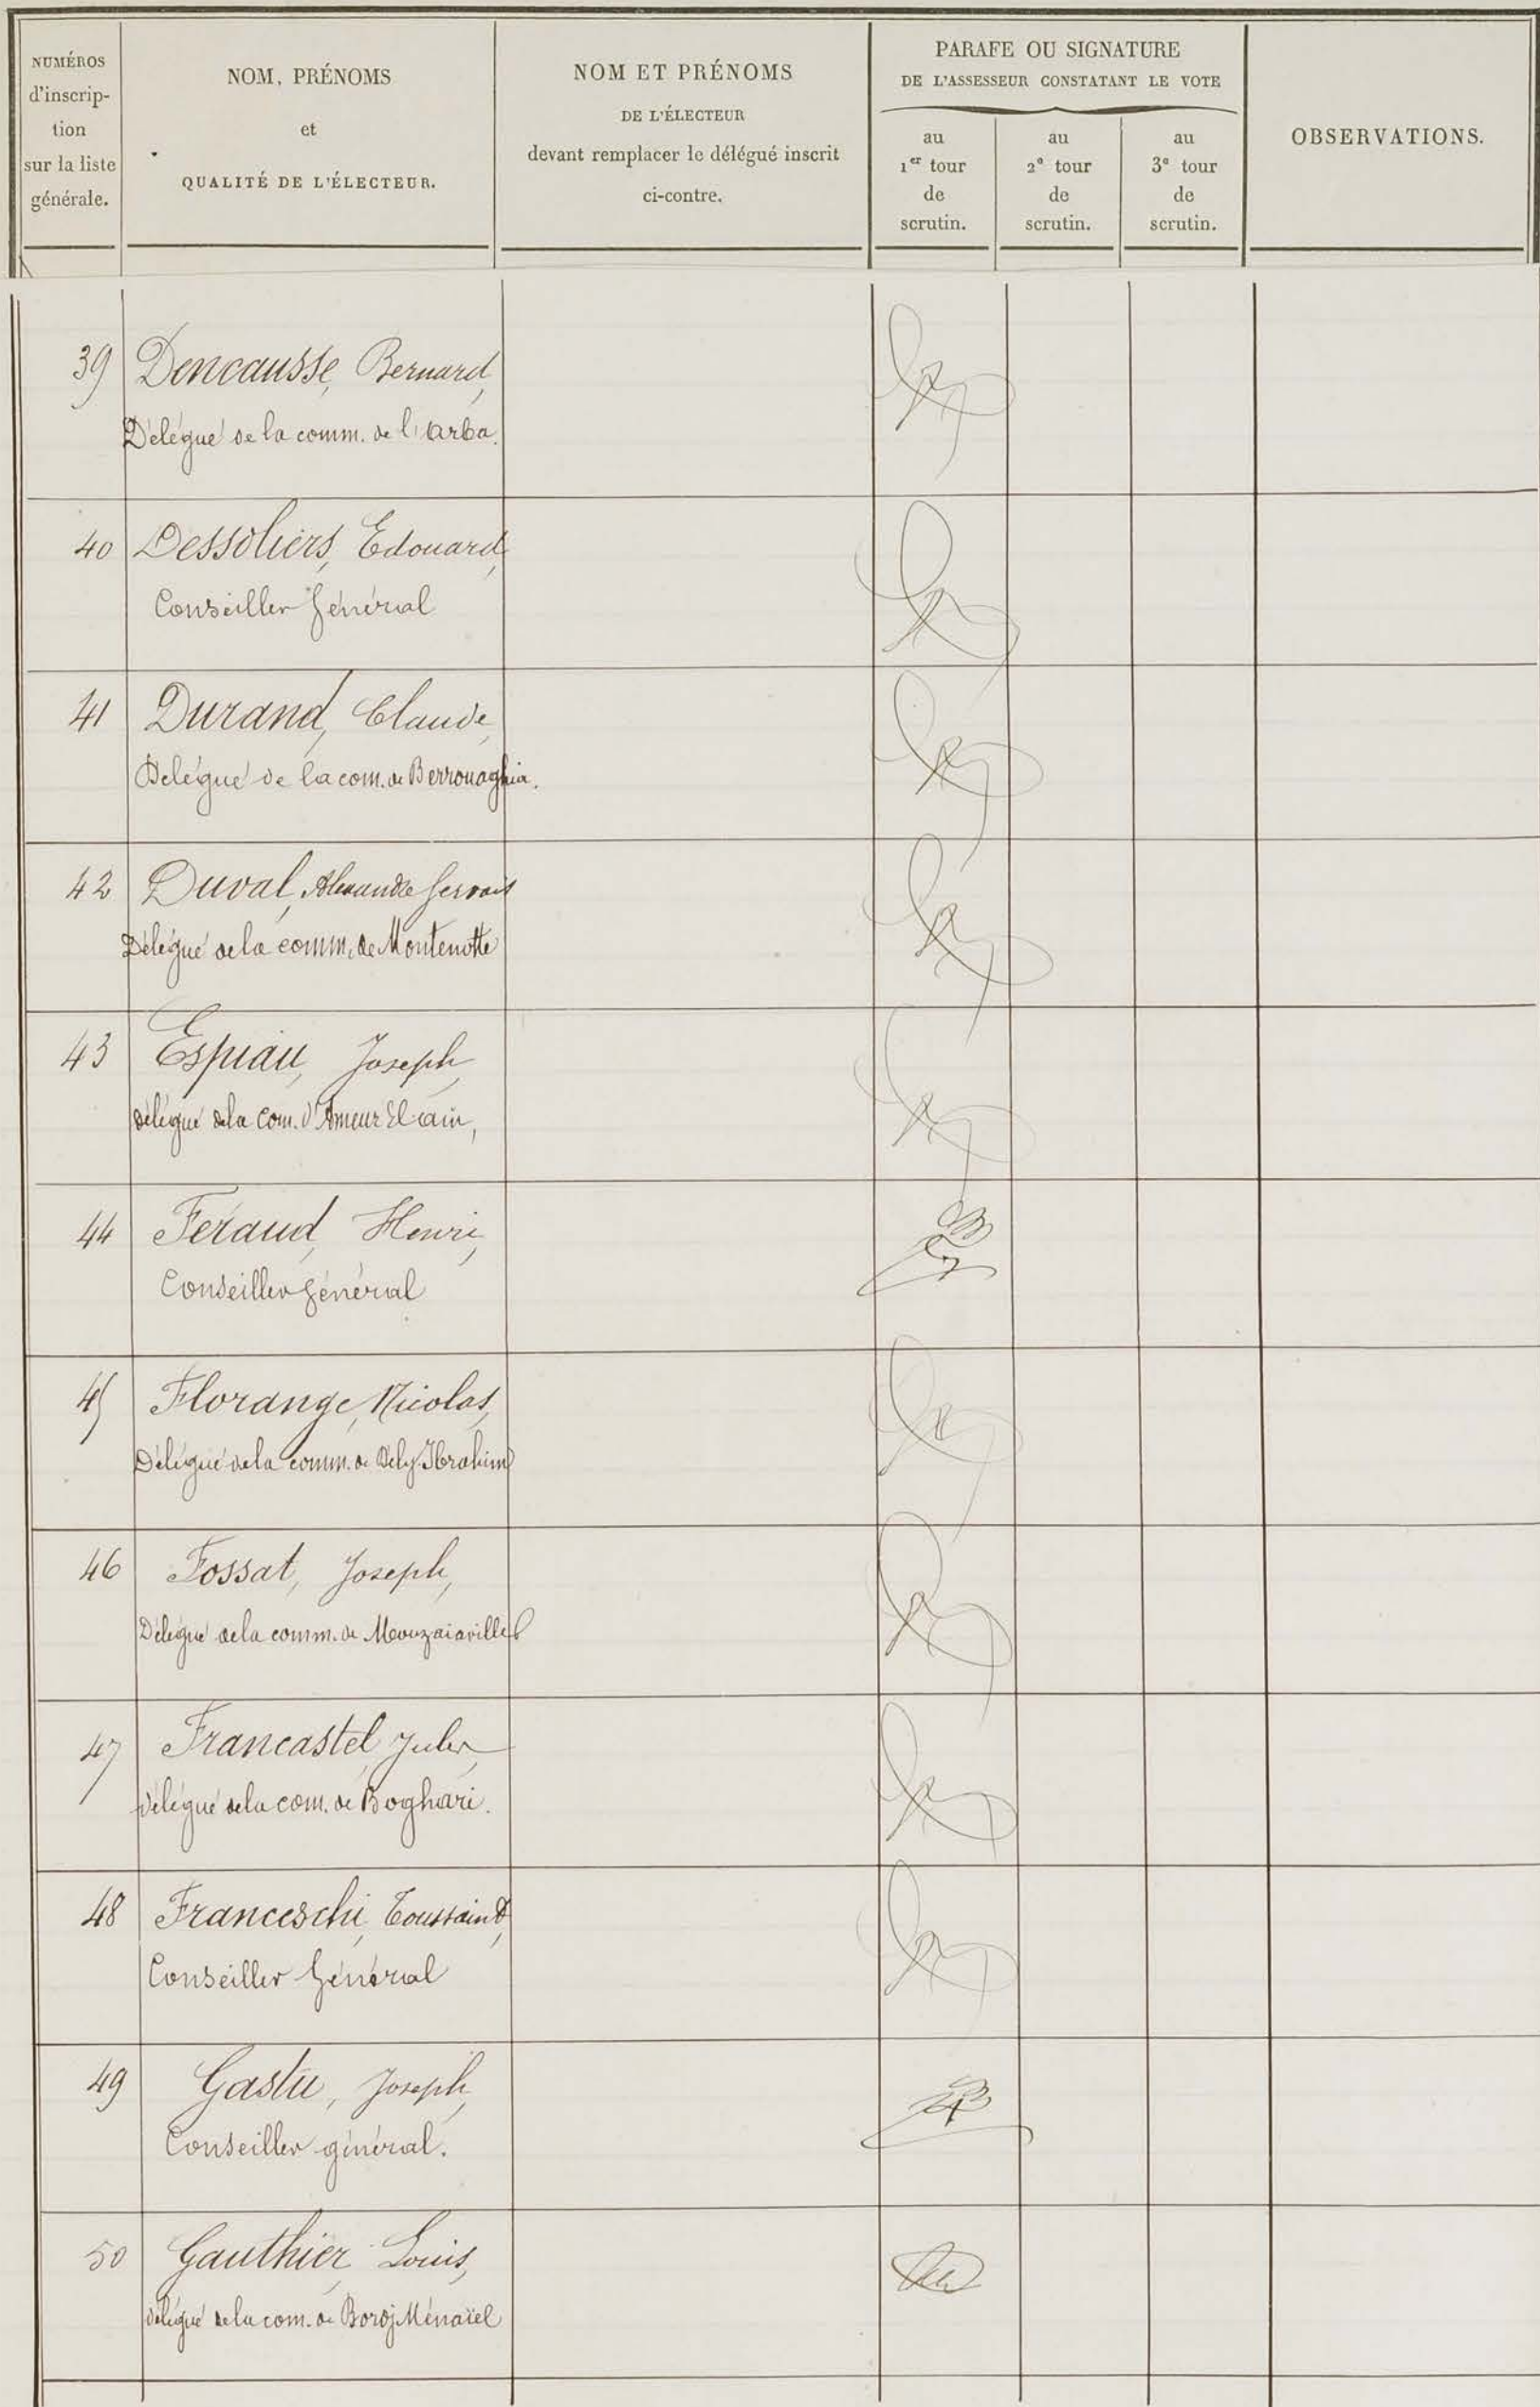 NUMÉROS
d'inscrip-
tion
sur la liste
générale.
NOM, PRÉNOMS
et
QUALITÉ DE L'ÉLECTEUR.
NOM ET PRÉNOMS
DE L'ÉLECTEUR
devant remplacer le délégué inscrit
ci-contre.
PARAFE OU SIGNATURE
DE L'ASSESSEUR CONSTATANT LE VOTE
au
1er tour
de
scrutin.
au
2e tour
de
scrutin.
au
3e tour
de
scrutin.
OBSERVATIONS.
39 Dencausse, Bernard,
Délégué de la comm. de l'Arba.
40 Dessoliers, Edouard,
Conseiller Général
41 Durand, Claude,
Délégué de la com. de Berrouaghia.
42 Duval, Alexandre Gervais
Délégué de la comm. de Montenotte
43 Espiau, Joseph,
délégué de la Com. d'Ameur El aïn,
44 Feraud, Henri,
Conseiller Général
45 Florange, Nicolas,
Délégué de la comm. de Dély Ibrahim
46 Fossat, Joseph,
Délégué de la comm. de Mouzaiaville
47 Francastel, Jules,
Délégué de la com. de Boghari.
48 Franceschi, Toussaint,
Conseiller Général
49 Gastu, Joseph,
Conseiller général.
50 Gauthier, Louis,
délégué de la com. de Bordj Ménaïel